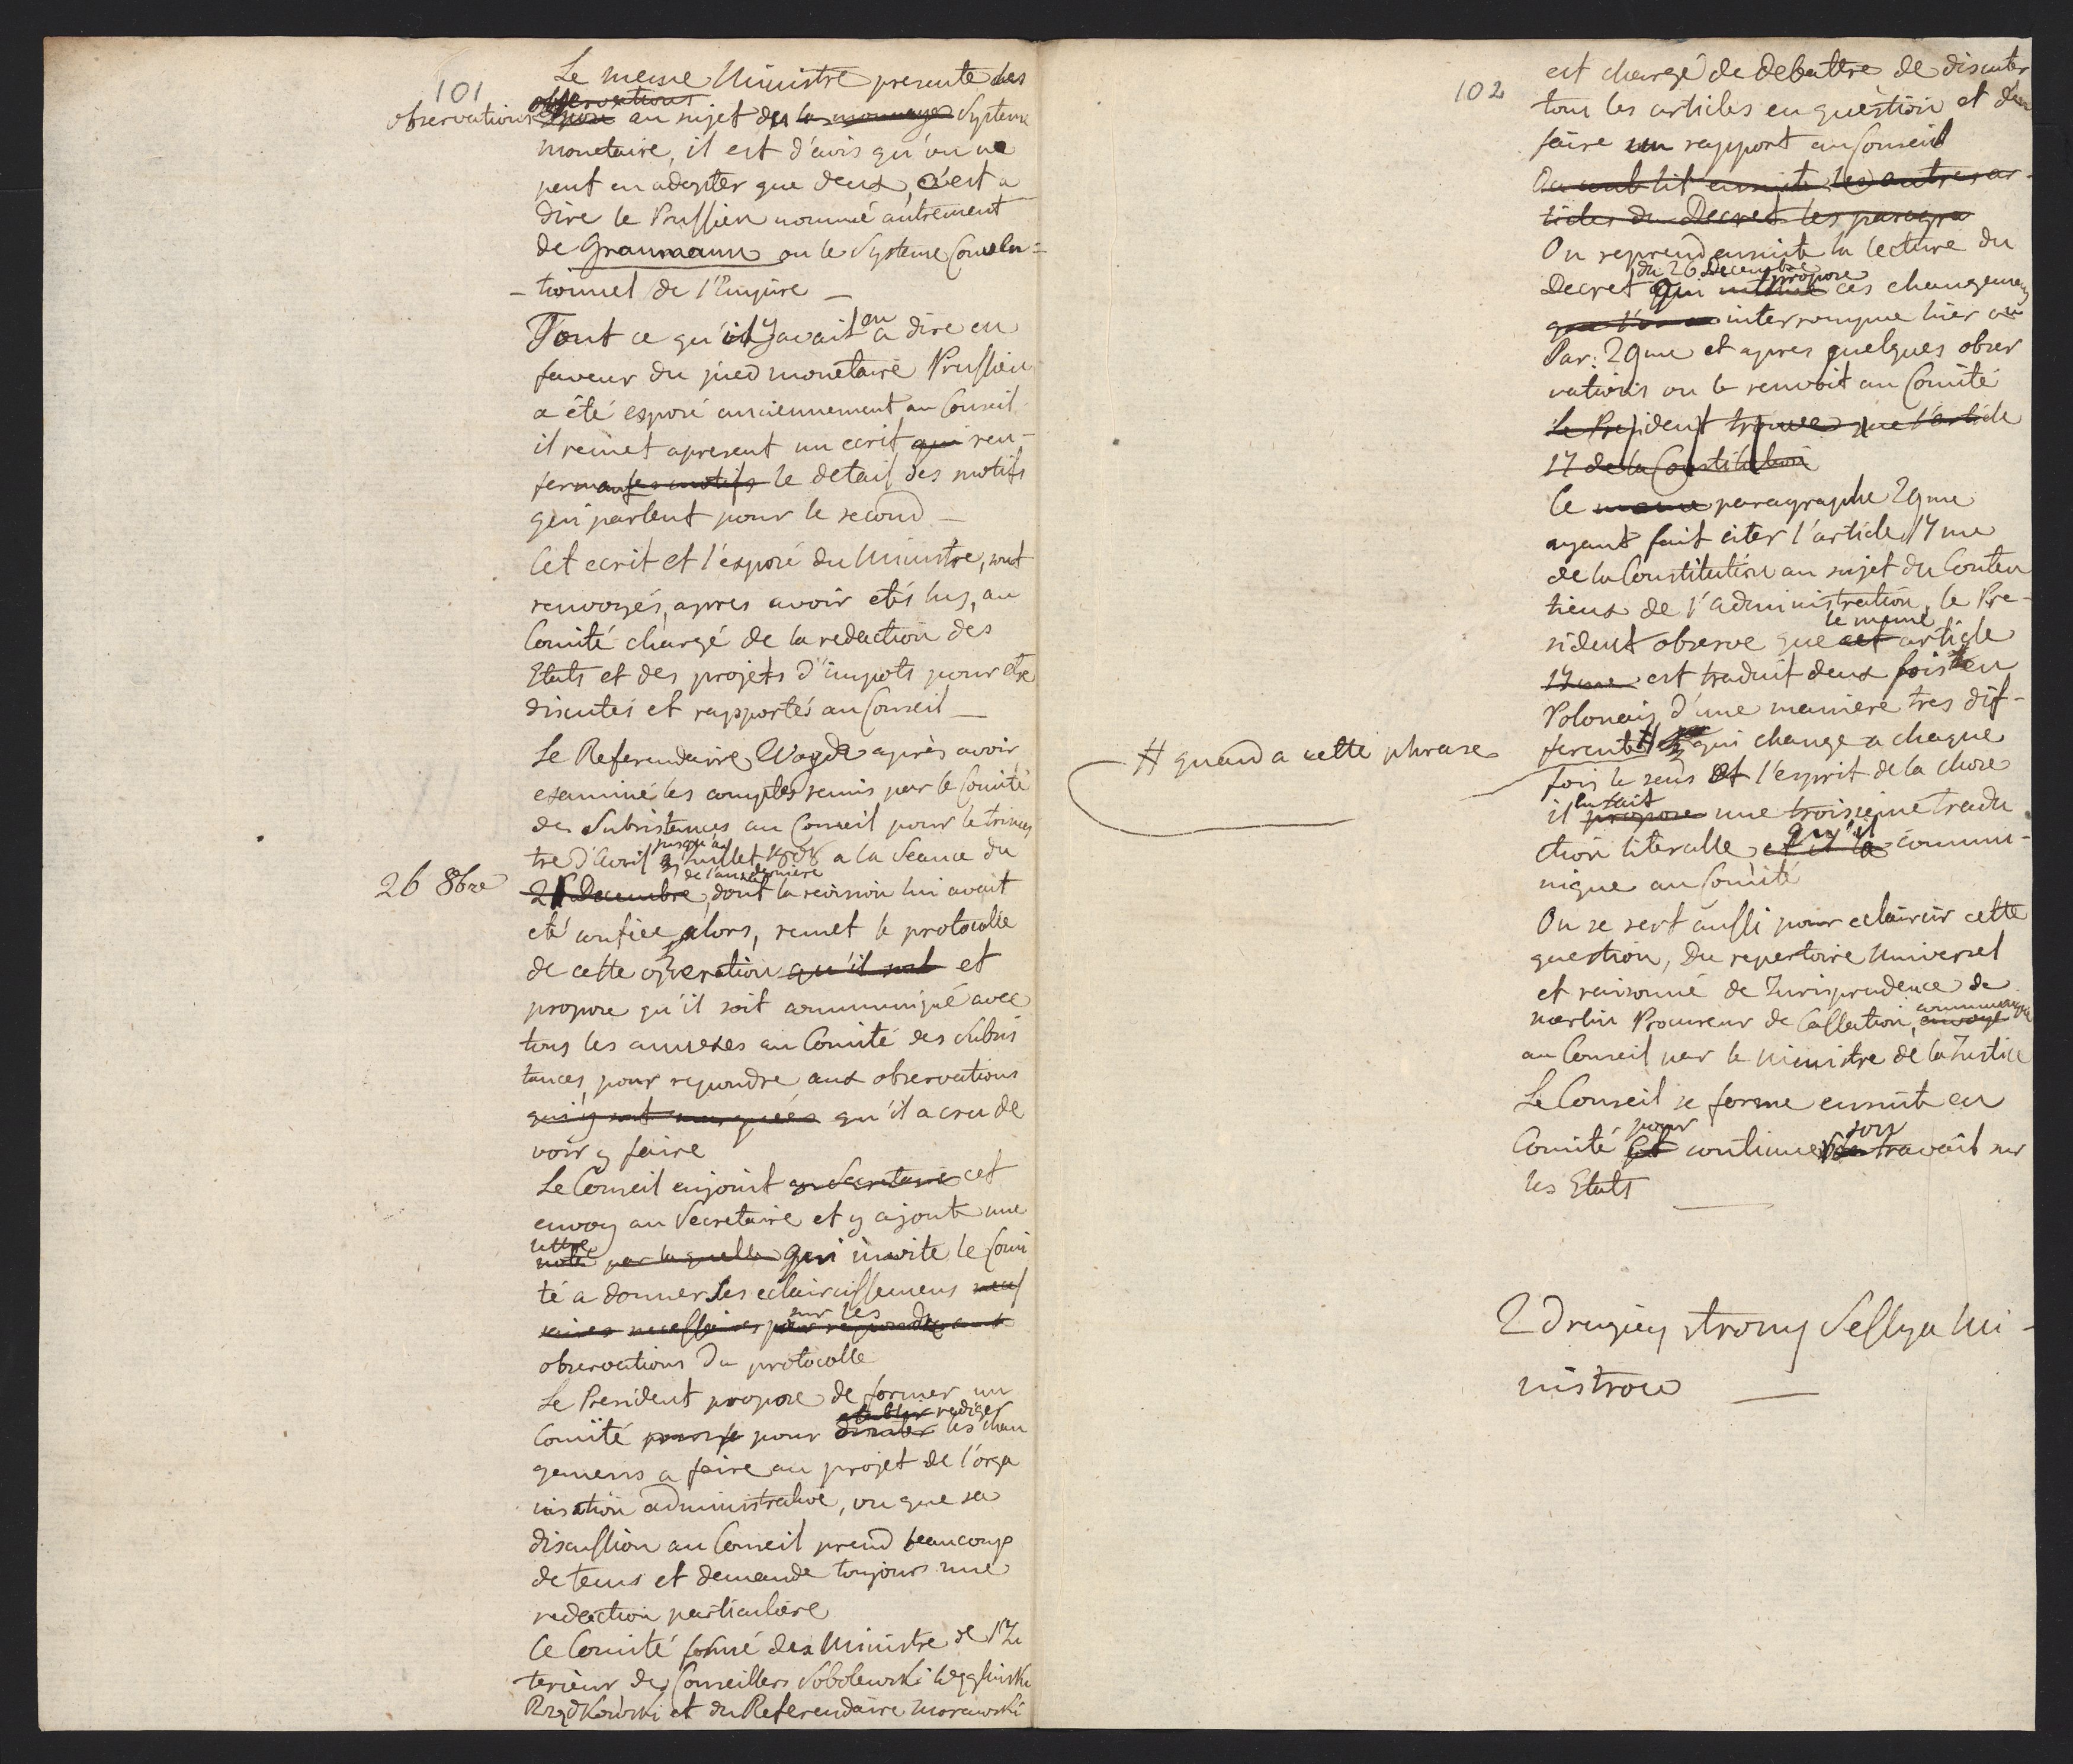 101
Le meme Ministre presente des
observations
observations au sujet du les monnayes Systeme
monetaire, il est d'avis qu'on ne
peut en adopter que deux, c'est a
dire le Prussien nommé autrement
de Graumann ou le Systeme Conven=
tionnel de l'Empire —
Tout ce qu'il y avait eu a dire en
faveur du pied monetaire Prussien
a été exposé anciennement au Conseil
il remet apresent un ecrit qui ren-
fermant ses motifs le detail des motifs
qui parlent pour le second —
Cet ecrit et l'exposé du Ministre, sont
renvoyés, apres avoir etés lus, au
Comité chargé de la redaction des
Etats et des projets d'impots pour etre
discutés et rapportés au Conseil —
Le Referendaire Woyda après avoir
examiné les comptes remis par le Comité
des Subsistances au Conseil pour le trimes
tre d'Avril jusqu'au Juillet 1808 a la Seance du
26 8bre de l'année derniere
21 Decembre, dont la revision lui avait
eté confiée alors, remet le protocolle
de cette operation qu'il et
propose qu'il soit communiqué avec
tous les annexes au Comité des Subsis
tances, pour repondre aux observations
qui y sont marquées qu'il a cru de
voir y faire
Le Conseil enjoint au Secretaire cet
envoy au Secretaire et y ajoute une
lettre
note par laquelle qui invite le Comi
té a donner les eclaircissemens neces
saires necessaires pour repondre aux sur les
observations du protocolle
Le President propose de former un
etablir rediger
Comité pour discuter les chan
gemens a faire au projet de l'orga
nisation administrative, vu que sa
discussion au Conseil prend beaucoup
de tems et demande toujours une
redaction particuliere
Ce Comité formé des Ministre de l'In
terieur des Conseillers Sobolewski Węgliński
Rządkowski et du Referendaire Morawski
102
est chargé de debattre de discuter
tous les articles en question et d'en
faire un rapport au Conseil
On lit ensuite les autres ar-
ticles du Decret les paragra
On reprend ensuite la lecture du
du 26 Decembre propose
Decret qui ces changemens
que l'on a interrompue hier au
Par: 29me et apres quelques obser
vations on le renvoit au Comité
Le President trouve que l'article
17 de la Constitution
Ce meme paragraphe 29me
ayant fait citer l'article 17me
de la Constitution au sujet du Conten
tieux de l'administration, le Pre-
le meme
sident observe que cet article
17me est traduit deux fois en
Polonais d'une maniere tres dif-
ferente # qui change a chaque
# quand a cette phrase
fois le sens et l'esprit de la chose
en fait
il propose une troisieme tradu
ction literalle et il la qu'il commu-
nique au Comité
On se sert aussi pour eclaircir cette
question, du repertoire Universel
et raisonné de Jurisprudence de
communiqué
merlin Procureur de Cassation, envoyé
au Conseil par le Ministre de la Justice
Le Conseil se forme ensuite en
pour son
Comité et continuer travail sur
les Etats
Z drugiey strony Sessya Mi-
nistrow —